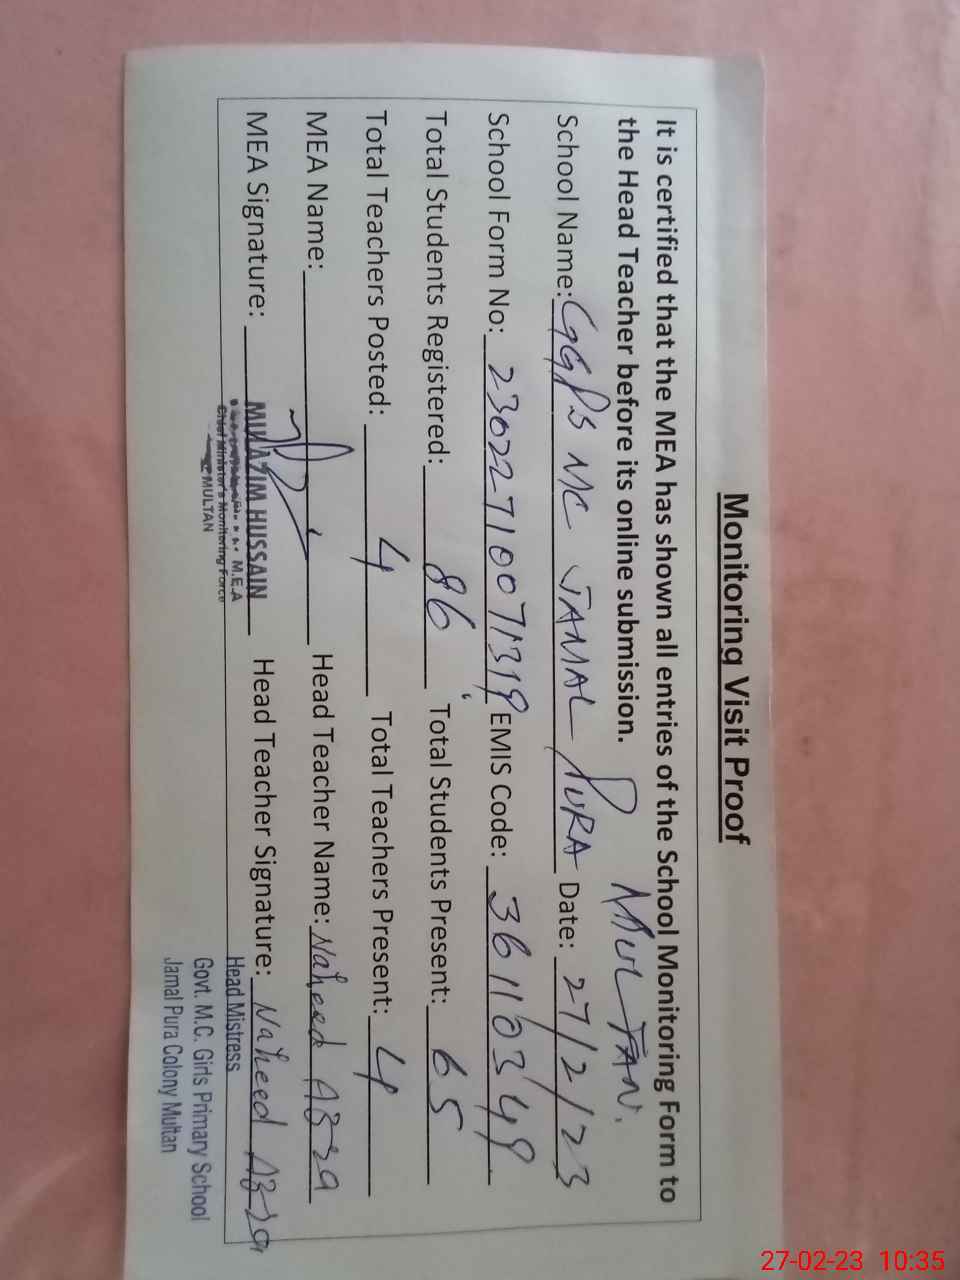 Monitoring Visit Proof
It is certified that the MEA has shown all entries of the School Monitoring Form to
the Head Teacher before its online submission. MULTAN.
School Name: GGPS MC JAMAL PURA Date: 27/2/23
School Form No: 23022710071319 EMIS Code: 36110349
Total Students Registered: 86 Total Students Present: 65
Total Teachers Posted: 4 Total Teachers Present: 4
MEA Name: Head Teacher Name: Naheed
MEA Signature: MULAZIM HUSSAIN Head Teacher Signature: Naheed
M.E.A
Chief Minister's Monitoring Force
MULTAN
Head Mistress
Govt. M.C. Girls Primary School
Jamal Pura Colony Multan
27-02-23 10:35